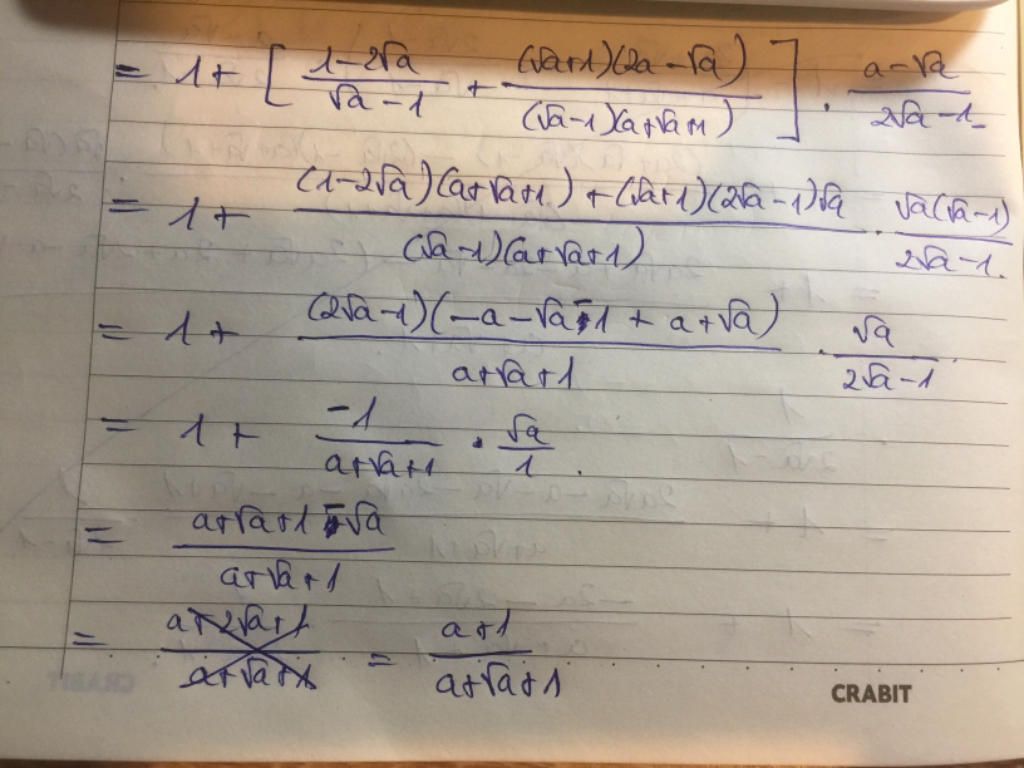 = 1 + [ (1-2√a)/(√a-1) + ((√a+1)(2a-√a))/((√a-1)(a+√a+1)) ] . (a-√a)/(2√a-1)
= 1 + ((1-2√a)(a+√a+1)+(√a+1)(2√a-1)√a)/((√a-1)(a+√a+1)) . (√a(√a-1))/(2√a-1).
= 1 + ((2√a-1)(-a-√a-1+a+√a))/(a+√a+1) . √a/(2√a-1).
= 1 + (-1)/(a+√a+1) . √a/1 .
= (a+√a+1-√a)/(a+√a+1)
= (a+2√a+1)/(a+√a+1) = (a+1)/(a+√a+1)
CRABIT